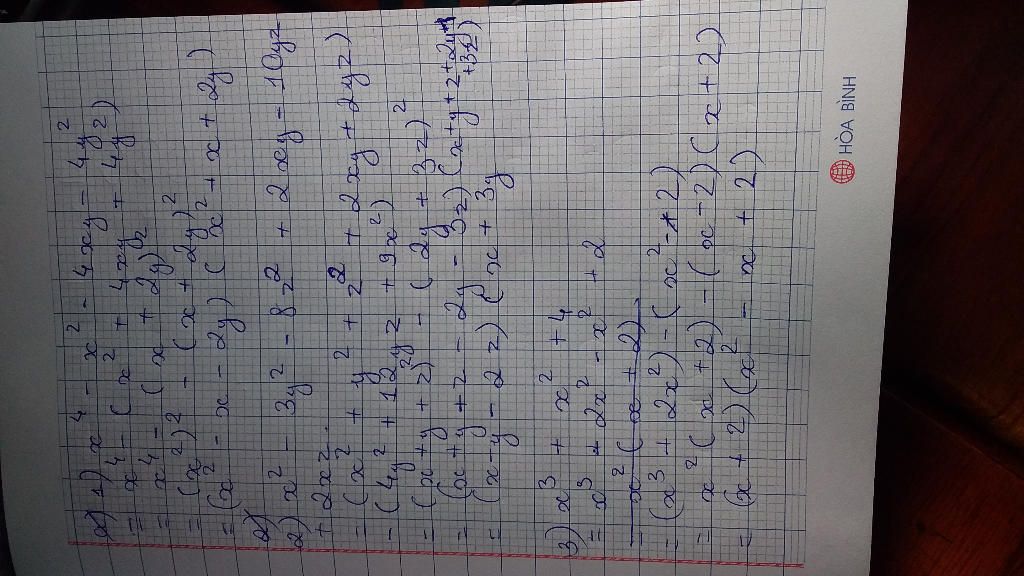 1) x⁴ - x² - 4xy - 4y²
= x⁴ - (x² + 4xy + 4y²)
= x⁴ - (x + 2y)²
= (x²)² - (x + 2y)²
= (x² - x - 2y)(x² + x + 2y)
2) x² - 3y² - 8z² + 2xy - 10yz
+ 2xz.
= (x² + y² + z² + 2xy + 2yz)
- (4y² + 12yz + 9x²)
= (x+y+z)² - (2y + 3z)²
= (x+y+z - 2y - 3z)(x+y+z+2y+3z)
= (x-y - 2z)(x + 3y
3) x³ + x² + 4
= x³ + 2x² - x² + 2
= x²(x+2)
= (x³ + 2x²) - (x² - 2)
= x²(x+2) - (x-2)(x+2)
= (x+2)(x² - x + 2)
HÒA BÌNH